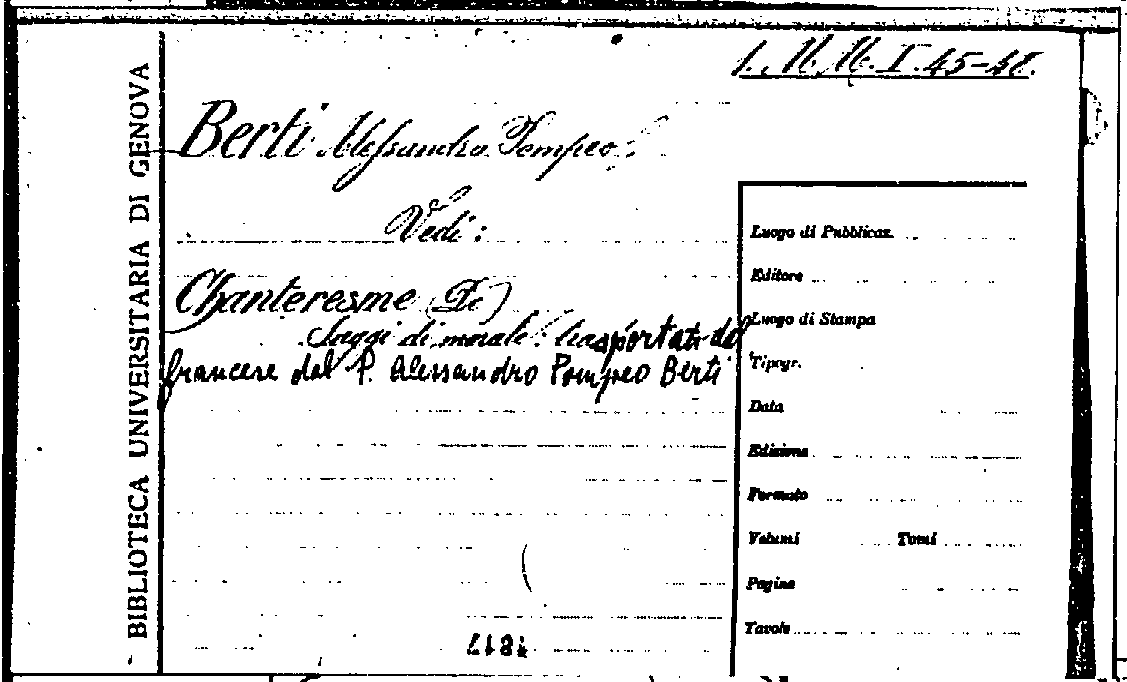 BIBLIOTECA UNIVERSITARIA DI GENOVA
Berti Alessandro Pompeo.
Vedi:
Chanteresme (De)
Saggi di morale: trasportati dal
francese dal P. Alessandro Pompeo Berti
Luogo di Pubblicaz.
Editore
Luogo di Stampa
Tipogr.
Data
Edizione
Formato
Volumi Tomi
Pagine
Tavole